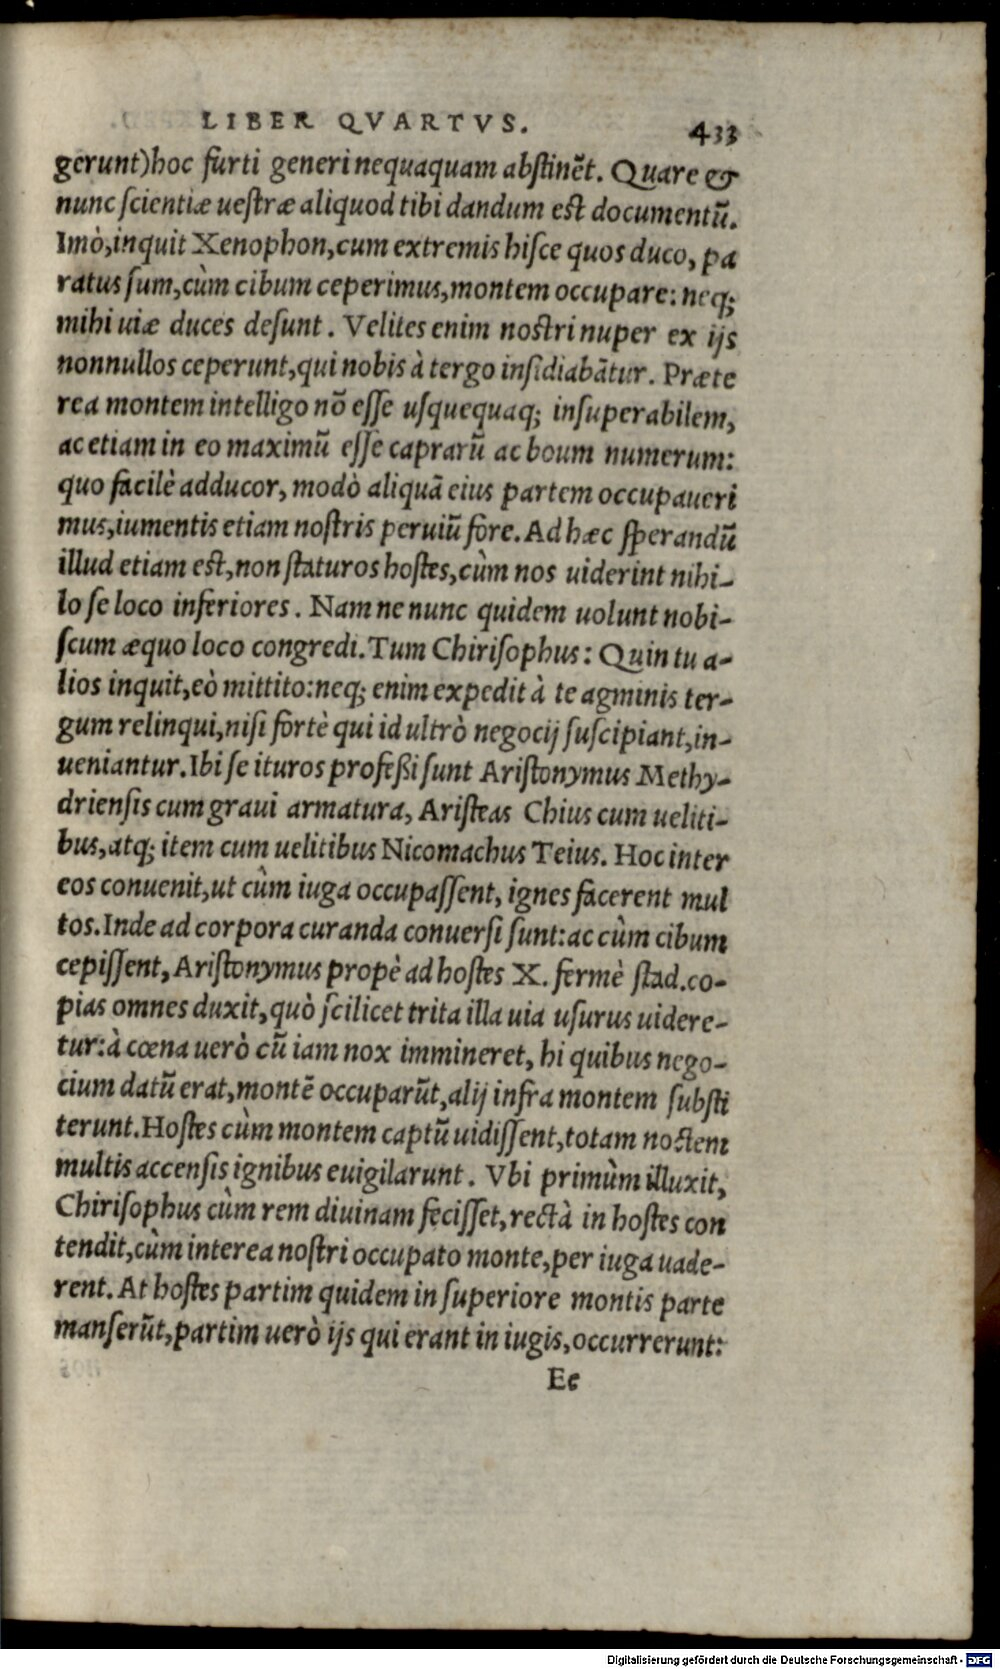 LIBER QVARTVS. 433
gerunt) hoc furti generi nequaquam abstinēt. Quare &
nunc scientiæ uestræ aliquod tibi dandum est documentū.
Imò, inquit Xenophon, cum extremis hisce quos duco, pa
ratus sum, cùm cibum ceperimus, montem occupare: neq;
mihi uiæ duces desunt. Velites enim nostri nuper ex ijs
nonnullos ceperunt, qui nobis à tergo insidiabātur. Præte
rea montem intelligo nō esse usquequaq; insuperabilem,
ac etiam in eo maximū esse caprarū ac boum numerum:
quo facilè adducor, modò aliquā eius partem occupaueri
mus, iumentis etiam nostris peruiū fore. Ad hæc sperandū
illud etiam est, non staturos hostes, cùm nos uiderint nihi-
lo se loco inferiores. Nam ne nunc quidem uolunt nobi-
scum æquo loco congredi. Tum Chirisophus: Quin tu a-
lios inquit, eò mittito: neq; enim expedit à te agminis ter-
gum relinqui, nisi fortè qui id ultrò negocij suscipiant, in-
ueniantur. Ibi se ituros profeßi sunt Aristonymus Methy-
driensis cum graui armatura, Aristeas Chius cum ueliti-
bus, atq; item cum uelitibus Nicomachus Teius. Hoc inter
eos conuenit, ut cùm iuga occupassent, ignes facerent mul
tos. Inde ad corpora curanda conuersi sunt: ac cùm cibum
cepissent, Aristonymus propè ad hostes X. fermè stad. co-
pias omnes duxit, quò scilicet trita illa uia usurus uidere-
tur: à cœna uerò cū iam nox immineret, hi quibus nego-
cium datū erat, montē occuparūt, alij infra montem substi
terunt. Hostes cùm montem captū uidissent, totam noctem
multis accensis ignibus euigilarunt. Vbi primùm illuxit,
Chirisophus cùm rem diuinam fecisset, rectà in hostes con
tendit, cùm interea nostri occupato monte, per iuga uade-
rent. At hostes partim quidem in superiore montis parte
manserūt, partim uerò ijs qui erant in iugis, occurrerunt:
Ee
Digitalisierung gefördert durch die Deutsche Forschungsgemeinschaft - DFG